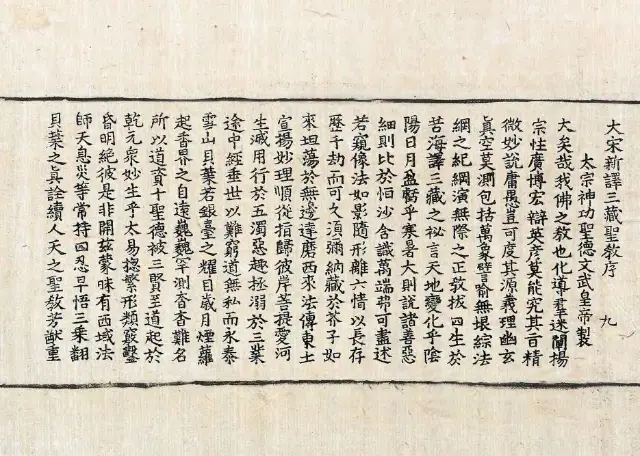 大宋新譯三藏聖教序 九
太宗神功聖德文武皇帝製
大矣哉我佛之教也化導群迷闡揚
宗性廣博宏辯英彥莫能究其旨精
微妙說庸愚豈可度其源義理幽玄
真空莫測包括萬象譬喻無垠綜法
網之紀綱演無際之正教拔四生於
苦海譯三藏之祕言天地變化乎陰
陽日月盈虧乎寒暑大則說諸善惡
細則比於恒沙含識萬端弗可盡述
若窺像法如影隨形離六情以長存
歷千劫而可久須彌納藏於芥子如
來坦蕩於無邊達磨西來法傳東土
宣揚妙理順從指歸彼岸菩提愛河
生滅用行於五濁惡趣拯溺於三業
途中經垂世以難窮道無私而永泰
雪山貝葉若銀臺之耀目歲月煙蘿
起香界之自遠巍巍罕測杳杳難名
所以道資十聖德被三賢至道起於
乾元衆妙生乎太易揔繁形類竅鑿
昏明絕彼是非開茲蒙昧有西域法
師天息災等常持四忍早悟三乘翻
貝葉之真詮續人天之聖教芳猷重